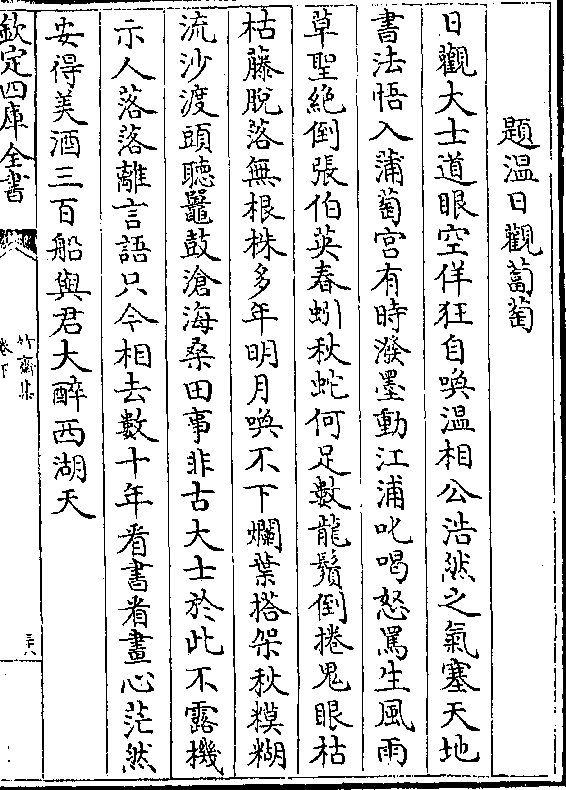 題温日觀蔔萄
日觀大士道眼空佯狂自喚温相公浩然之氣塞天地
書法悟入蒲萄宫有時潑墨動江浦叱喝怒罵生風雨
草聖絶倒張伯英春蚓秋蛇何足數龍鬚倒捲鬼眼枯
枯藤脫落無根株多年明月喚不下爛葉搭架秋糢糊
流沙渡頭聽鼉鼓滄海桑田事非古大士於此不露機
示人落落離言語只今相去數十年看書看畫心茫然
安得美酒三百船與君大醉西湖天
欽定四庫全書
竹齋集
卷下
三六